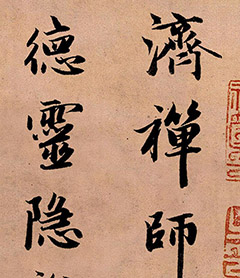 濟禪師
德靈隐